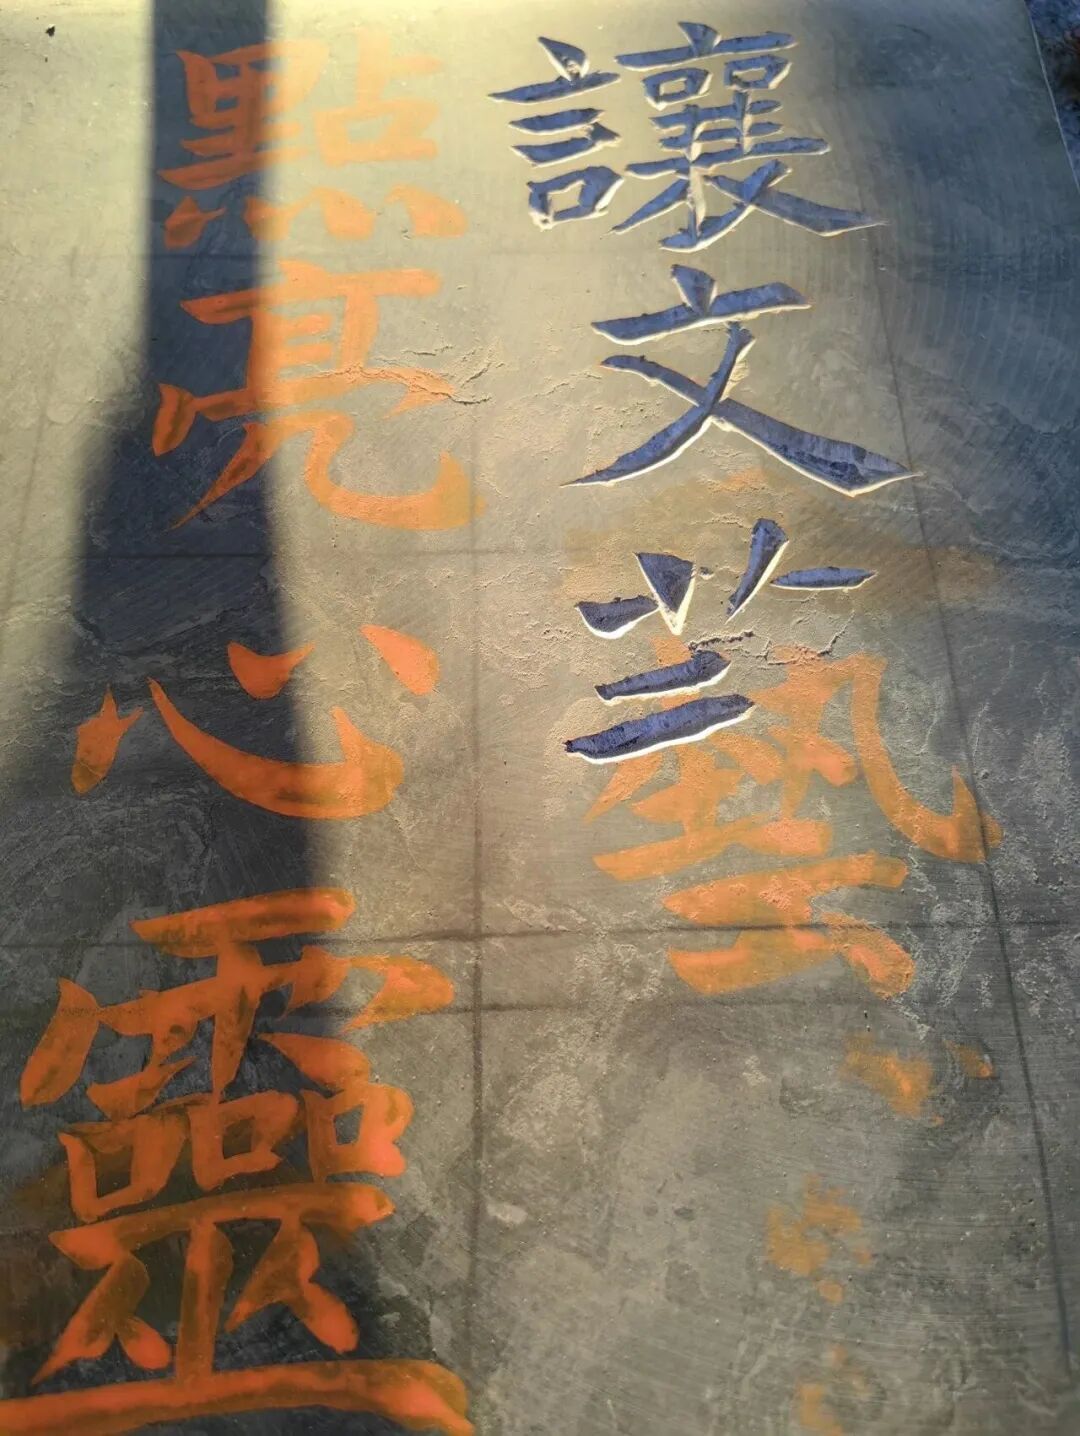 讓文藝
點亮心靈